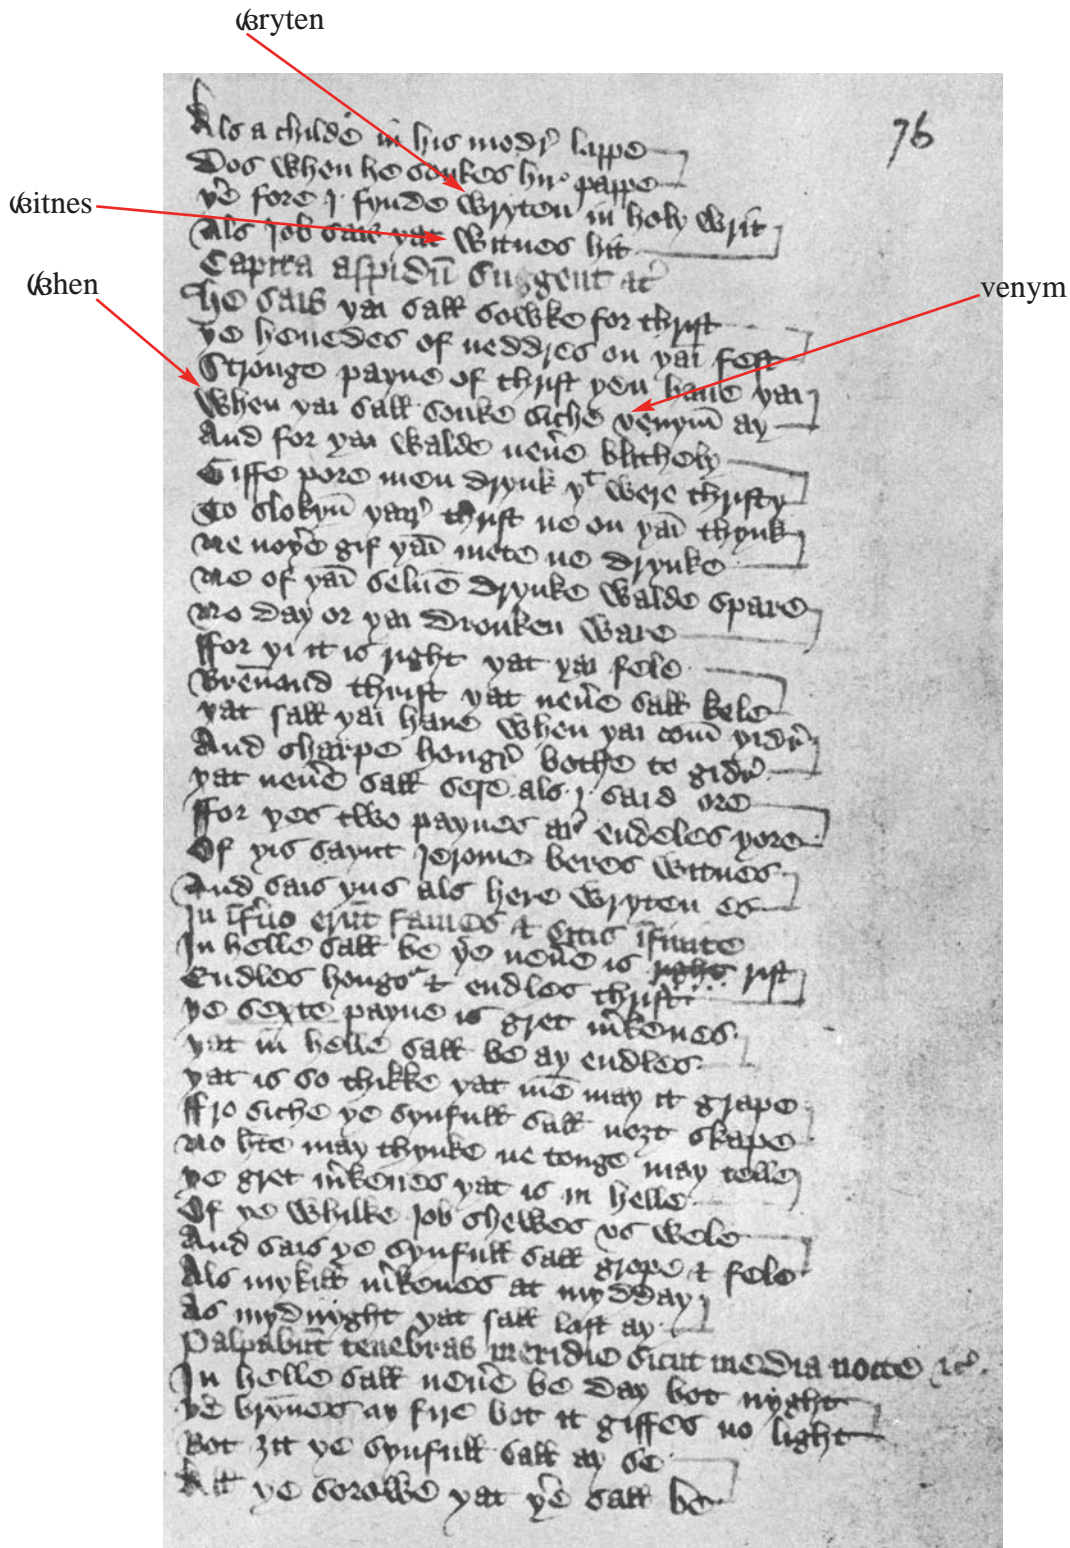 wryten
witnes
when
venym
76
Als a childe in his modr lappe
Dos when he soukes hir pappe
ye fore I fynde wryten in holy writ
Als Job sais yat witnes hit
Capita aspidū suggent
he sais yai sall sowke for thrist
ye heuedes of neddres on yai fest
Stronge payne of thrist yen haue yai
When yai sall souke siche venym ay
And for yai walde neue blithely
Giffe pore men drynk yt were thristy
To slokyn yair thrist ne on yai thynk
Ne noye gif yai mete ne drynke
Ne of yai selue drynke walde spare
No day or yai dronken ware
ffor yi it is right yat yai fele
Brenand thrist yat neue sall kele
yat sall yai haue when yai com yidr
And sharpe hongr bothe to gidr
yat neue sall sese als I said ore
ffor yes two paynes ar endeles yore
Of yis saynt Jerome beres witnes
And sais yus als here wryten es
In ifno erut fames & sitis ifinite
In helle sall be ye neue is right rist
Endles honger & endles thrist
ye sexte payne is gret mkenes
yat in helle sall be ay endles
yat is so thikke yat me may it grape
ffro siche ye synfull sall nozt skape
No hte may thynke ne tonge may telle
ye gret mkenes yat is in helle
Of ye whilke Job shewes vs wele
And sais ye synfull sall grope & fele
Als mykill mkenes at mydday
As mydnyght yat sall last ay
Palpabut tenebras meridie sicut in media nocte
In helle sall neue be day bot nyght
ye brynes ay fire bot it giffes no light
Bot zit ye synfull sall ay se
All ye sorowe yat ye sall be